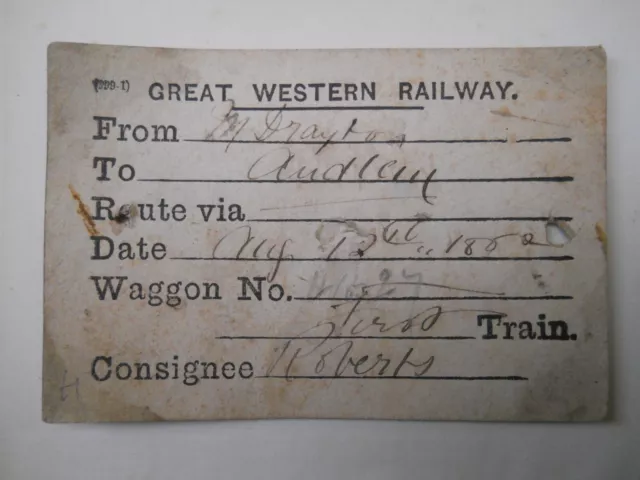 (999-1) GREAT WESTERN RAILWAY.
From M Drayton
To Audlem
Route via
Date Aug 12th 
Waggon No.
First Train.
Consignee Roberts
H